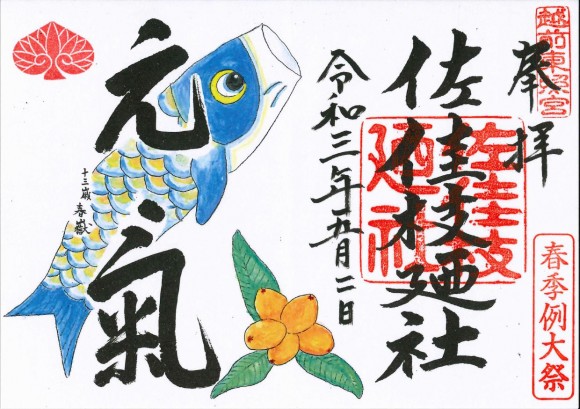 越前東照宮
奉拝
佐佳枝廼社
佐佳枝廼社
春季例大祭
令和三年五月二日
元氣
十三歳 春嶽